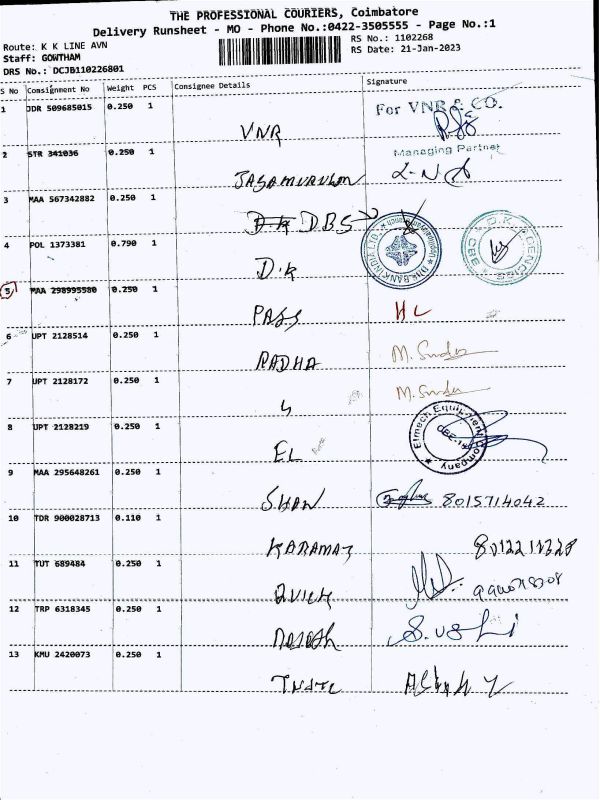 THE PROFESSIONAL COURIERS, Coimbatore
Delivery Runsheet - MO - Phone No.:0422-3505555 - Page No.:1
Route: K K LINE AVN
RS No.: 1102268
Staff: GOWTHAM
RS Date: 21-Jan-2023
DRS No.: DCJB110226801
S No Consignment No Weight PCS Consignee Details Signature
1 JDR 509685015 0.250 1
For VNR & CO.
VNR
Managing Partner
2 STR 341036 0.250 1
3 MAA 567342882 0.250 1
DBS
4 POL 1373381 0.790 1
DBS BANK INDIA LTD.
D.K
5 MAA 298995580 0.250 1
PASS HL
6 UPT 2128514 0.250 1
RADHA M. Sunder
7 UPT 2128172 0.250 1
M. Sunder
8 UPT 2128219 0.250 1
Elmech Equipment Company
EL
9 MAA 295648261 0.250 1
SHAN 8015714042
10 TDR 900028713 0.110 1
11 TUT 689484 0.250 1
12 TRP 6318345 0.250 1
13 KMU 2420073 0.250 1